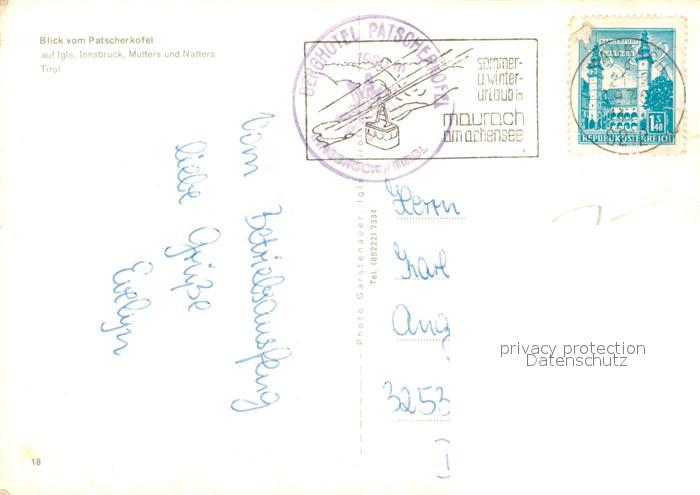 Blick vom Patscherkofel
auf Igls, Innsbruck, Mutters und Natters
Tirol
BERGHOTEL PATSCHERKOFEL
INNSBRUCK // TIROL
sommer-
u. winter-
urlaub in
maurach
am achensee
1.40
REPUBLIK ÖSTERREICH
Vom Betriebsausflug
liebe Grüße
Evelyn
Photo Garstenauer, Igls
Tel. (05222) 7334
Herrn
Karl
Ang
3253
privacy protection
Datenschutz
18